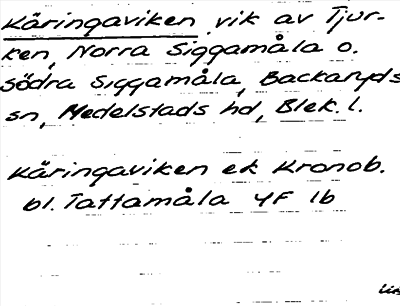 Käringaviken vik av Tjur-
ken, Norra Siggamåla o.
södra Siggamåla, Backaryds
sn, Medelstads hd, Blek. l.
Käringaviken ek Kronob.
bl. Tattamåla 4F 1b